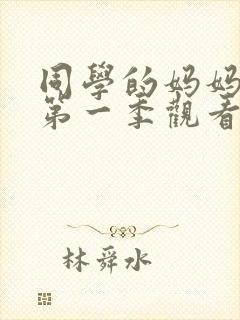 同學的妈妈
第一季觀看
林舜水